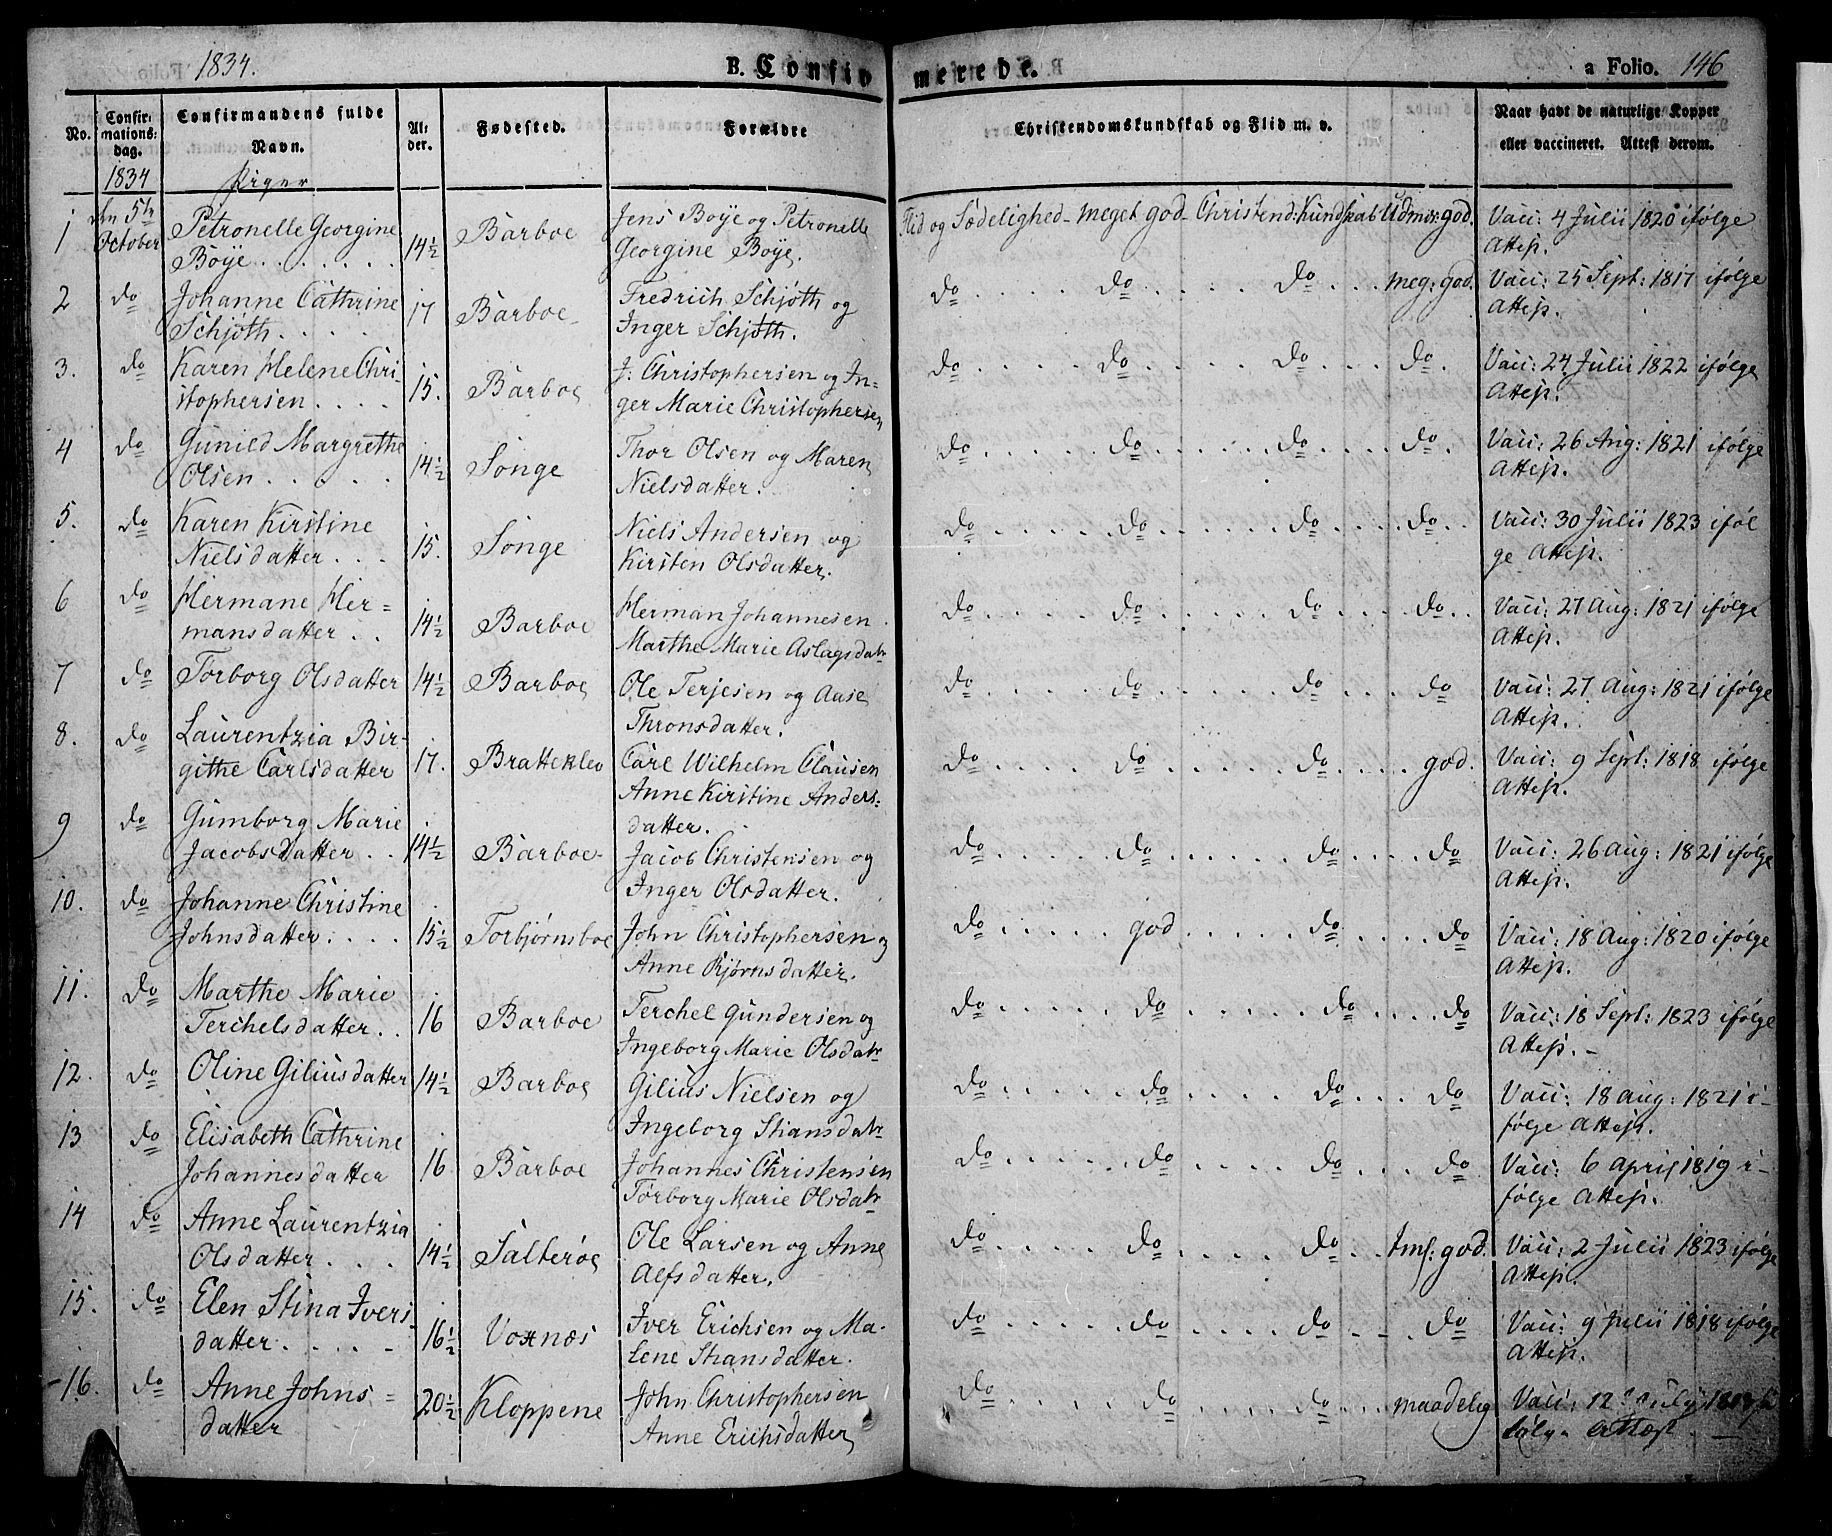 1834.
B. Confirmerede.
a Folio. 146
No. Confirmations-dag. Confirmandens fulde Navn. Alder. Fødested. Forældre Christendomskundskab og Flid m. v. Naar havt de naturlige Kopper eller vaccineret. Attest derom.
1834 Piger
1 den 5te October Petronelle Georgine Böÿe 14½ Barboe Jens Boÿe og Petronelle Georgine Böÿe. Flid og Sædelighed - meget god - Christend: Kundskab Udmær: god. Vacc: 4 Julii 1820 ifølge Attest.
2 do Johanne Cathrine Schjøth 17 Barboe Fredrich Schjøth og Inger Schjøth. do do do meg: god. Vacc: 25 Sept: 1817 ifølge Attest.
3. do Karen Helene Christophersen 15. Barboe J: Christophersen og Inger Marie Christophersen do do do do Vacc: 24 Julii 1822 ifølge Attest.
4 do Gunild Margrethe Olsen 14½ Songe Thor Olsen og Maren Nielsdatter. do do do do Vacc: 26 Aug: 1821 ifølge Attest.
5. do Karen Kirstine Nielsdatter 15. Songe Niels Andersen og Kirsten Olsdatter. do do do do Vacc: 30 Julii 1823 ifølge Attest.
6 do Hermane Hermansdatter 14½ Barboe Herman Johannesen Marthe Marie Aslagsdatr do do do do Vacc: 27 Aug: 1821 ifølge Attest.
7 do Torborg Olsdatter 14½ Barboe Ole Terjesen og Aase Thronsdatter. do do do do Vacc: 27 Aug: 1821 ifølge Attest.
8. do Laurentzia Birgithe Carlsdatter 17. Bratteklev Carl Wilhelm Clausen Anne Kirstine Andersdatter. do do do god. Vacc: 9 Sept: 1818 ifølge Attest.
9 do Gumborg Marie Jacobsdatter 14½ Barboe Jacob Christensen og Inger Olsdatter. do do do do Vacc: 26 Aug: 1821 ifølge Attest.
10. do Johanne Christine Johnsdatter 15½ Torbjørnsboe John Christophersen og Anne Bjørnsdatter. do god do do Vacc: 18 Aug: 1820 ifølge Attest.
11. do Marthe Marie Terchelsdatter 16 Barboe Terchel Gundersen og Ingeborg Marie Olsdatr do do do do Vacc: 18 Sept: 1823 ifølge Attest.
12. do Oline Giliusdatter 14½ Barboe Gilius Nielsen og Ingeborg Stiansdatr do do do do Vacc: 18 Aug: 1821 ifølge Attest.
13 do Elisabeth Cathrine Johannesdatter 16 Barboe Johannes Christensen Torborg Marie Olsdatr do do do do Vacc: 6 April 1819 ifølge Attest.
14 do Anne Laurentzia Olsdatter 14½ Salterøe Ole Larsen og Anne Alfsdatter. do do do tml: god. Vacc: 2 Julii 1823 ifølge Attest.
15. do Elen Stina Iversdatter 16½ Voxnæs Iver Erichsen og Malene Stiansdatter. do do do do Vacc: 9 Julii 1818 ifølge Attest.
16. do Anne Johnsdatter 20½ Kloppene John Christophersen Anne Erichsdatter do do do maadelig Vacc: 12 July Attest.